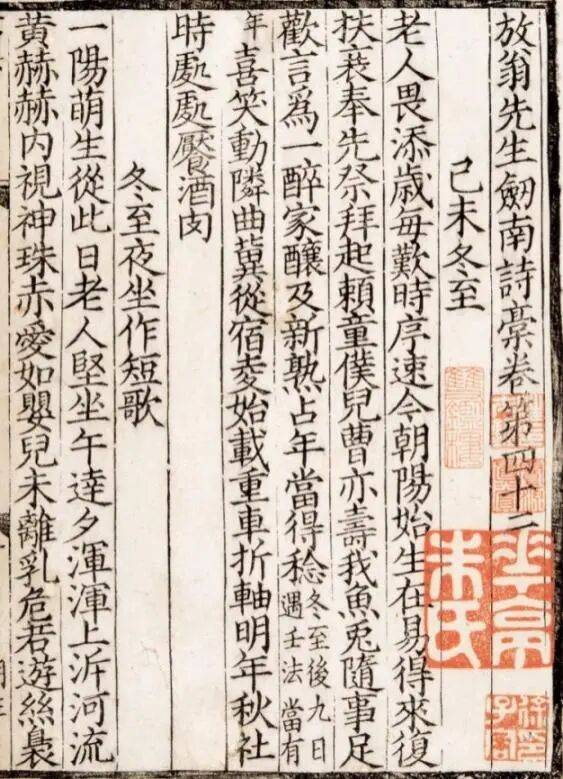 放翁先生劒南詩藁卷第四十二
己未冬至
老人畏添歲毎歎時序速今朝陽始生在易得來復
扶衰奉先祭拜起頼童僕兒曹亦壽我魚兎隨事足
歡言爲一醉家釀及新熟占年當得稔冬至後九日遇壬法當有
年喜笑動隣曲冀從宿麦始載重車折軸明年秋社
時處處饜酒肉
冬至夜坐作短歌
一陽萌生從此日老人堅坐午達夕渾渾上泝河流
黄赫赫内視神珠赤愛如嬰兒未離乳危若遊絲裊
雙鑑樓
華亭朱氏